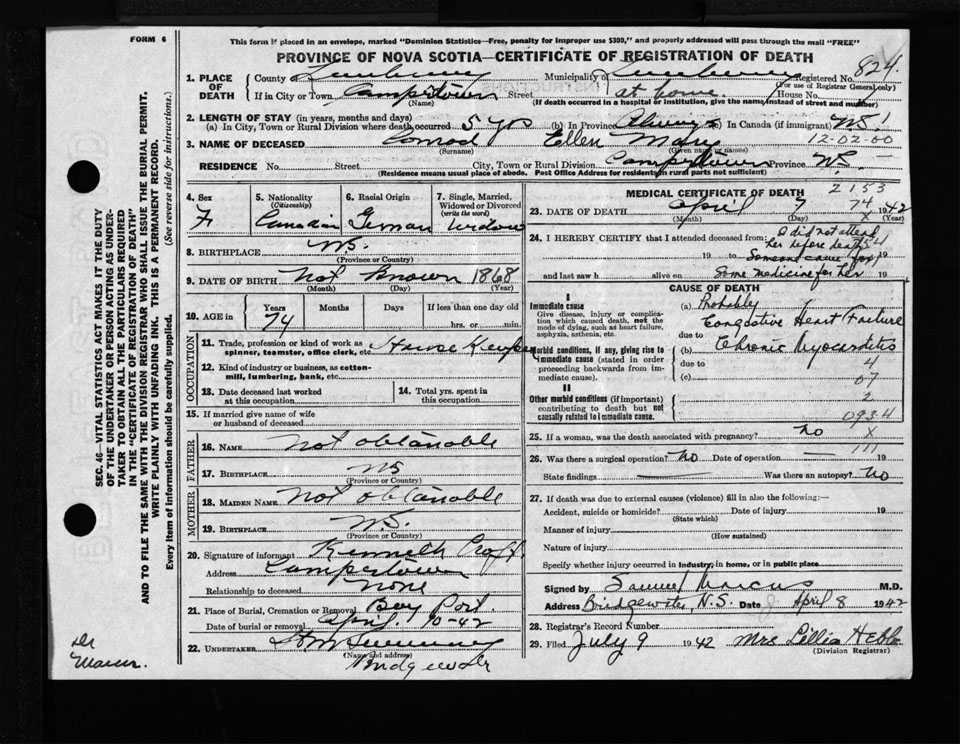 FORM 6
This form if placed in an envelope, marked "Dominion Statistics—Free, penalty for improper use $300," and properly addressed will pass through the mail "FREE"
PROVINCE OF NOVA SCOTIA—CERTIFICATE OF REGISTRATION OF DEATH
1. PLACE OF DEATH County of Lunenburg Municipality of Lunenburg Registered No. 824
(For use of Registrar General only)
If in City or Town Camperdown Street at home. House No.
(Name) (If death occurred in a hospital or institution, give the name instead of street and number)
2. LENGTH OF STAY (in years, months and days)
(a) In City, Town or Rural Division where death occurred 5 yrs (b) In Province Always (c) In Canada (if immigrant) N.S.
12-02-00
3. NAME OF DECEASED Conrad Ellen Mary
(Surname) (Given name or names)
RESIDENCE No. Street City, Town or Rural Division Camperdown Province N.S.
(Residence means usual place of abode. Post Office Address for residents in rural parts not sufficient)
4. Sex F
5. Nationality (Citizenship) Canadian
6. Racial Origin German
7. Single, Married, Widowed or Divorced (write the word) Widow
8. BIRTHPLACE N.S.
(Province or Country)
9. DATE OF BIRTH Not Known 1868
(Month) (Day) (Year)
10. AGE in Years 74 Months Days If less than one day old hrs. or min.
OCCUPATION
11. Trade, profession or kind of work as spinner, teamster, office clerk, etc. House Keeper
12. Kind of industry or business, as cotton-mill, lumbering, bank, etc.
13. Date deceased last worked at this occupation
14. Total yrs. spent in this occupation
15. If married give name of wife or husband of deceased
FATHER
16. NAME Not obtanable
17. BIRTHPLACE NS
(Province or Country)
MOTHER
18. MAIDEN NAME Not obtanable
19. BIRTHPLACE N.S.
(Province or Country)
20. Signature of informant Kenneth
Address Camperdown
Relationship to deceased None
21. Place of Burial, Cremation or Removal Bay Port.
Date of burial or removal April 10-42
22. UNDERTAKER
(Name and address)
Bridgewater
MEDICAL CERTIFICATE OF DEATH
2153
23. DATE OF DEATH April 7 74 1942
(Month) (Day) X (Year)
24. I HEREBY CERTIFY that I attended deceased from: I did not attend
her before death 54
19 to Someone came for 19
and last saw h alive on Some medicine for her 19
CAUSE OF DEATH
I
Immediate cause
Give disease, injury or complication which caused death, not the mode of dying, such as heart failure, asphyxia, asthenia, etc.
(a) Probably
Congestive Heart Failure
due to
Morbid conditions, if any, giving rise to immediate cause (stated in order proceeding backwards from immediate cause).
(b) Chronic Myocarditis
due to 4
(c) 07
II
Other morbid conditions (if important) contributing to death but not causally related to immediate cause.
2
0934
25. If a woman, was the death associated with pregnancy? No X
111
26. Was there a surgical operation? No Date of operation —
State findings — Was there an autopsy? No
27. If death was due to external causes (violence) fill in also the following:—
Accident, suicide or homicide? Date of injury 19
(State which)
Manner of injury
(How sustained)
Nature of injury
Specify whether injury occurred in industry, in home, or in public place
Signed by Samuel Marcus M.D.
Address Bridgewater, N.S. Date April 8 1942
28. Registrar's Record Number
29. Filed July 9 1942 Mrs Lillia Hebb
(Division Registrar)
SEC. 46—VITAL STATISTICS ACT MAKES IT THE DUTY
OF THE UNDERTAKER OR PERSON ACTING AS UNDER-
TAKER TO OBTAIN ALL THE PARTICULARS REQUIRED
IN THE "CERTIFICATE OF REGISTRATION OF DEATH"
AND TO FILE THE SAME WITH THE DIVISION REGISTRAR WHO SHALL ISSUE THE BURIAL PERMIT.
WRITE PLAINLY WITH UNFADING INK. THIS IS A PERMANENT RECORD.
Every item of information should be carefully supplied. (See reverse side for instructions.)